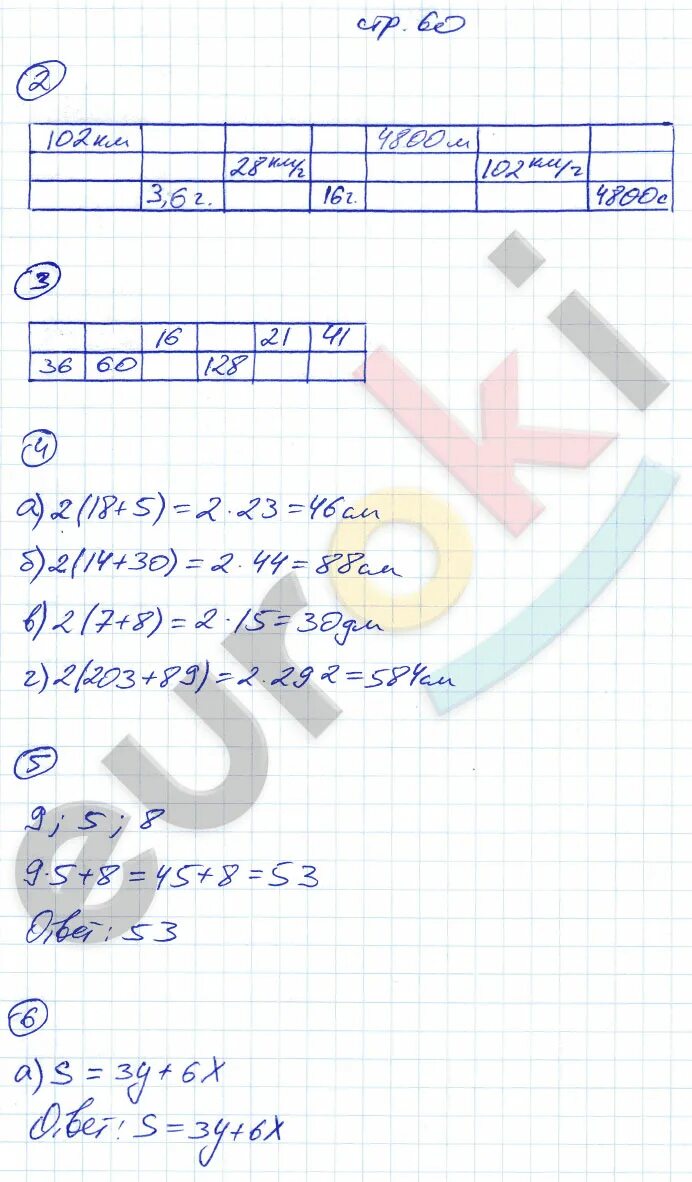 стр. 60
2
102км 4800м
28км/г 102км/г
3,6г. 16г. 4800с
3
16 21 41
36 60 128
4
а) 2(18+5) = 2·23 = 46см
б) 2(14+30) = 2·44 = 88см
в) 2(7+8) = 2·15 = 30дм
г) 2(203+89) = 2·292 = 584см
5
9; 5; 8
9·5+8 = 45+8 = 53
Ответ: 53
6
а) S = 3y + 6x
Ответ: S = 3y+6x
euroki